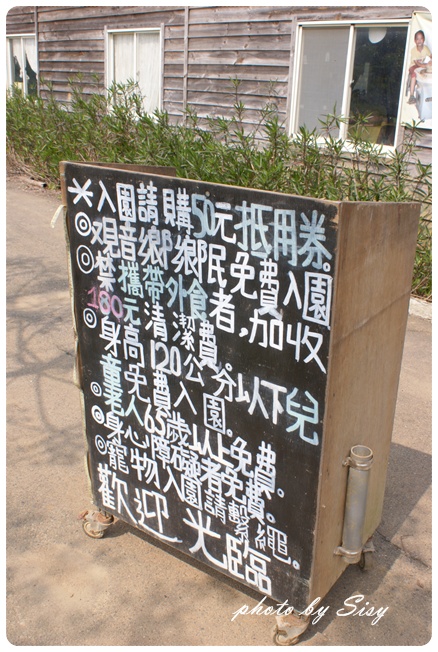 ＊入園請購50元抵用券。
◎觀音鄉鄉民免費入園
◎禁攜帶外食者,加收
180元清潔費。
◎身高120公分以下兒
童免費入園。
◎老人65歲以上免費。
◎身心障礙者免費。
◎寵物入園請繫繩。
歡迎光臨
photo by Sisy